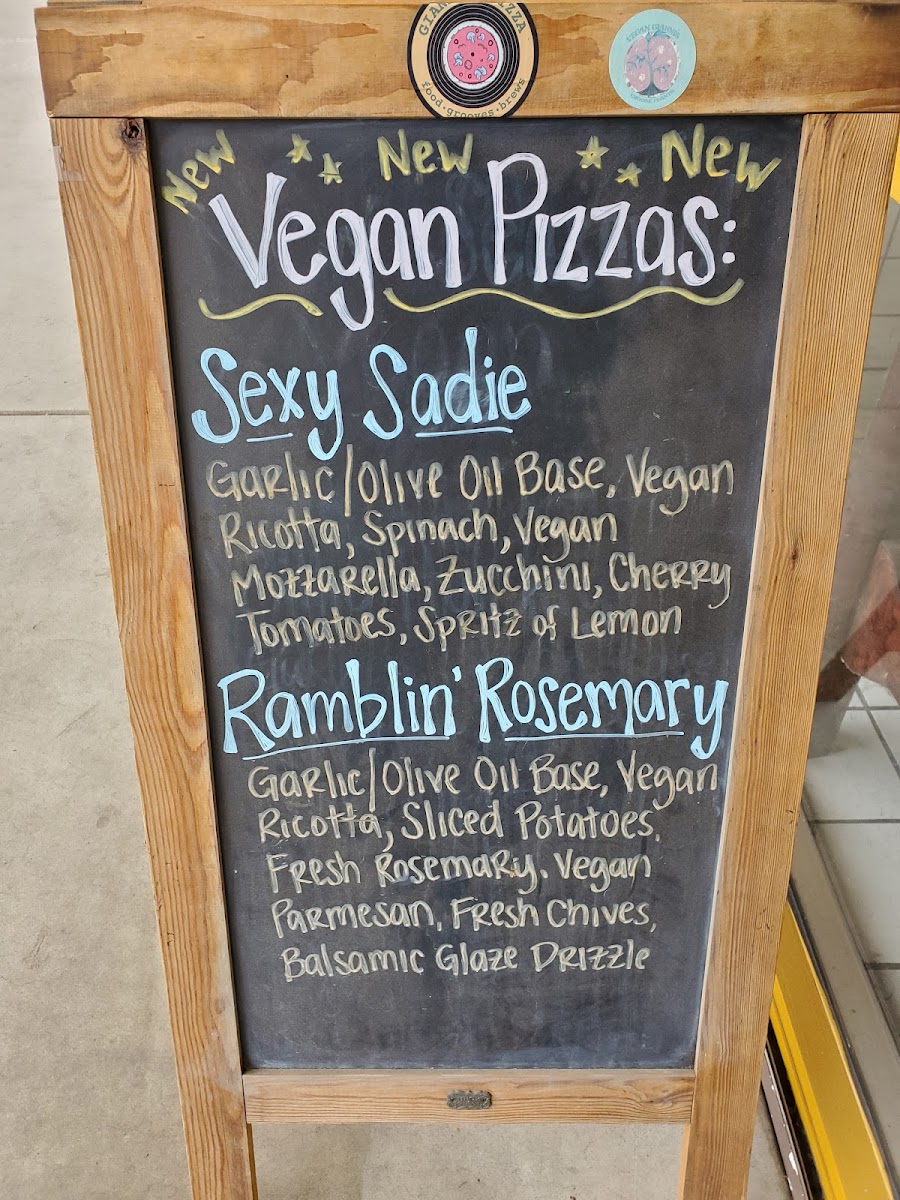 food·grooves·brews
New New New
Vegan Pizzas:
Sexy Sadie
Garlic/Olive Oil Base, Vegan
Ricotta, Spinach, Vegan
Mozzarella, Zucchini, Cherry
Tomatoes, Spritz of Lemon
Ramblin' Rosemary
Garlic/Olive Oil Base, Vegan
Ricotta, Sliced Potatoes,
Fresh Rosemary. Vegan
Parmesan, Fresh Chives,
Balsamic Glaze Drizzle